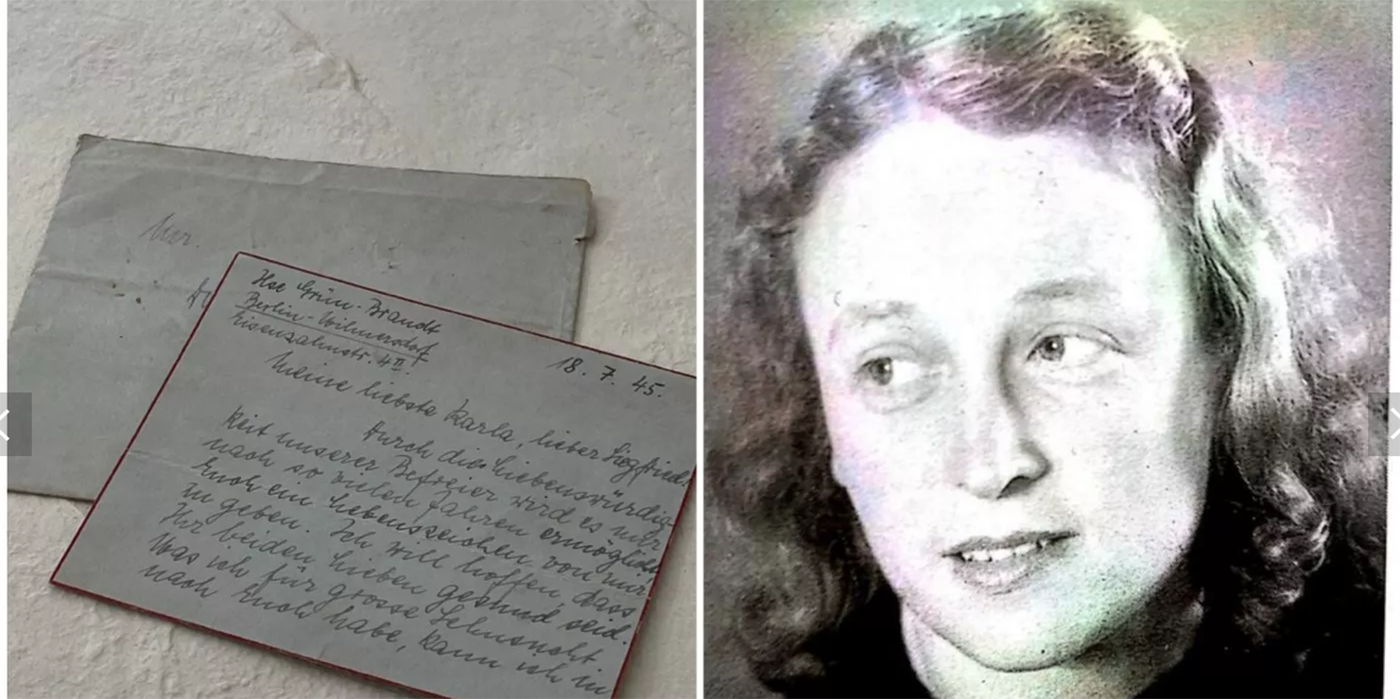 Ilse Grün-Brandt
Berlin-Wilmersdorf
Eisenzahnstr. 4 II.
18. 7. 45.
Meine liebste Karla, lieber Siegfried!
Durch die Liebenswürdig
keit unserer Befreier wird es mir
nach so vielen Jahren ermöglicht
Euch ein Lebenszeichen von mir
zu geben. Ich will hoffen, dass
Ihr beiden Lieben gesund seid.
Was ich für grosse Sehnsucht
nach Euch habe, kann ich in